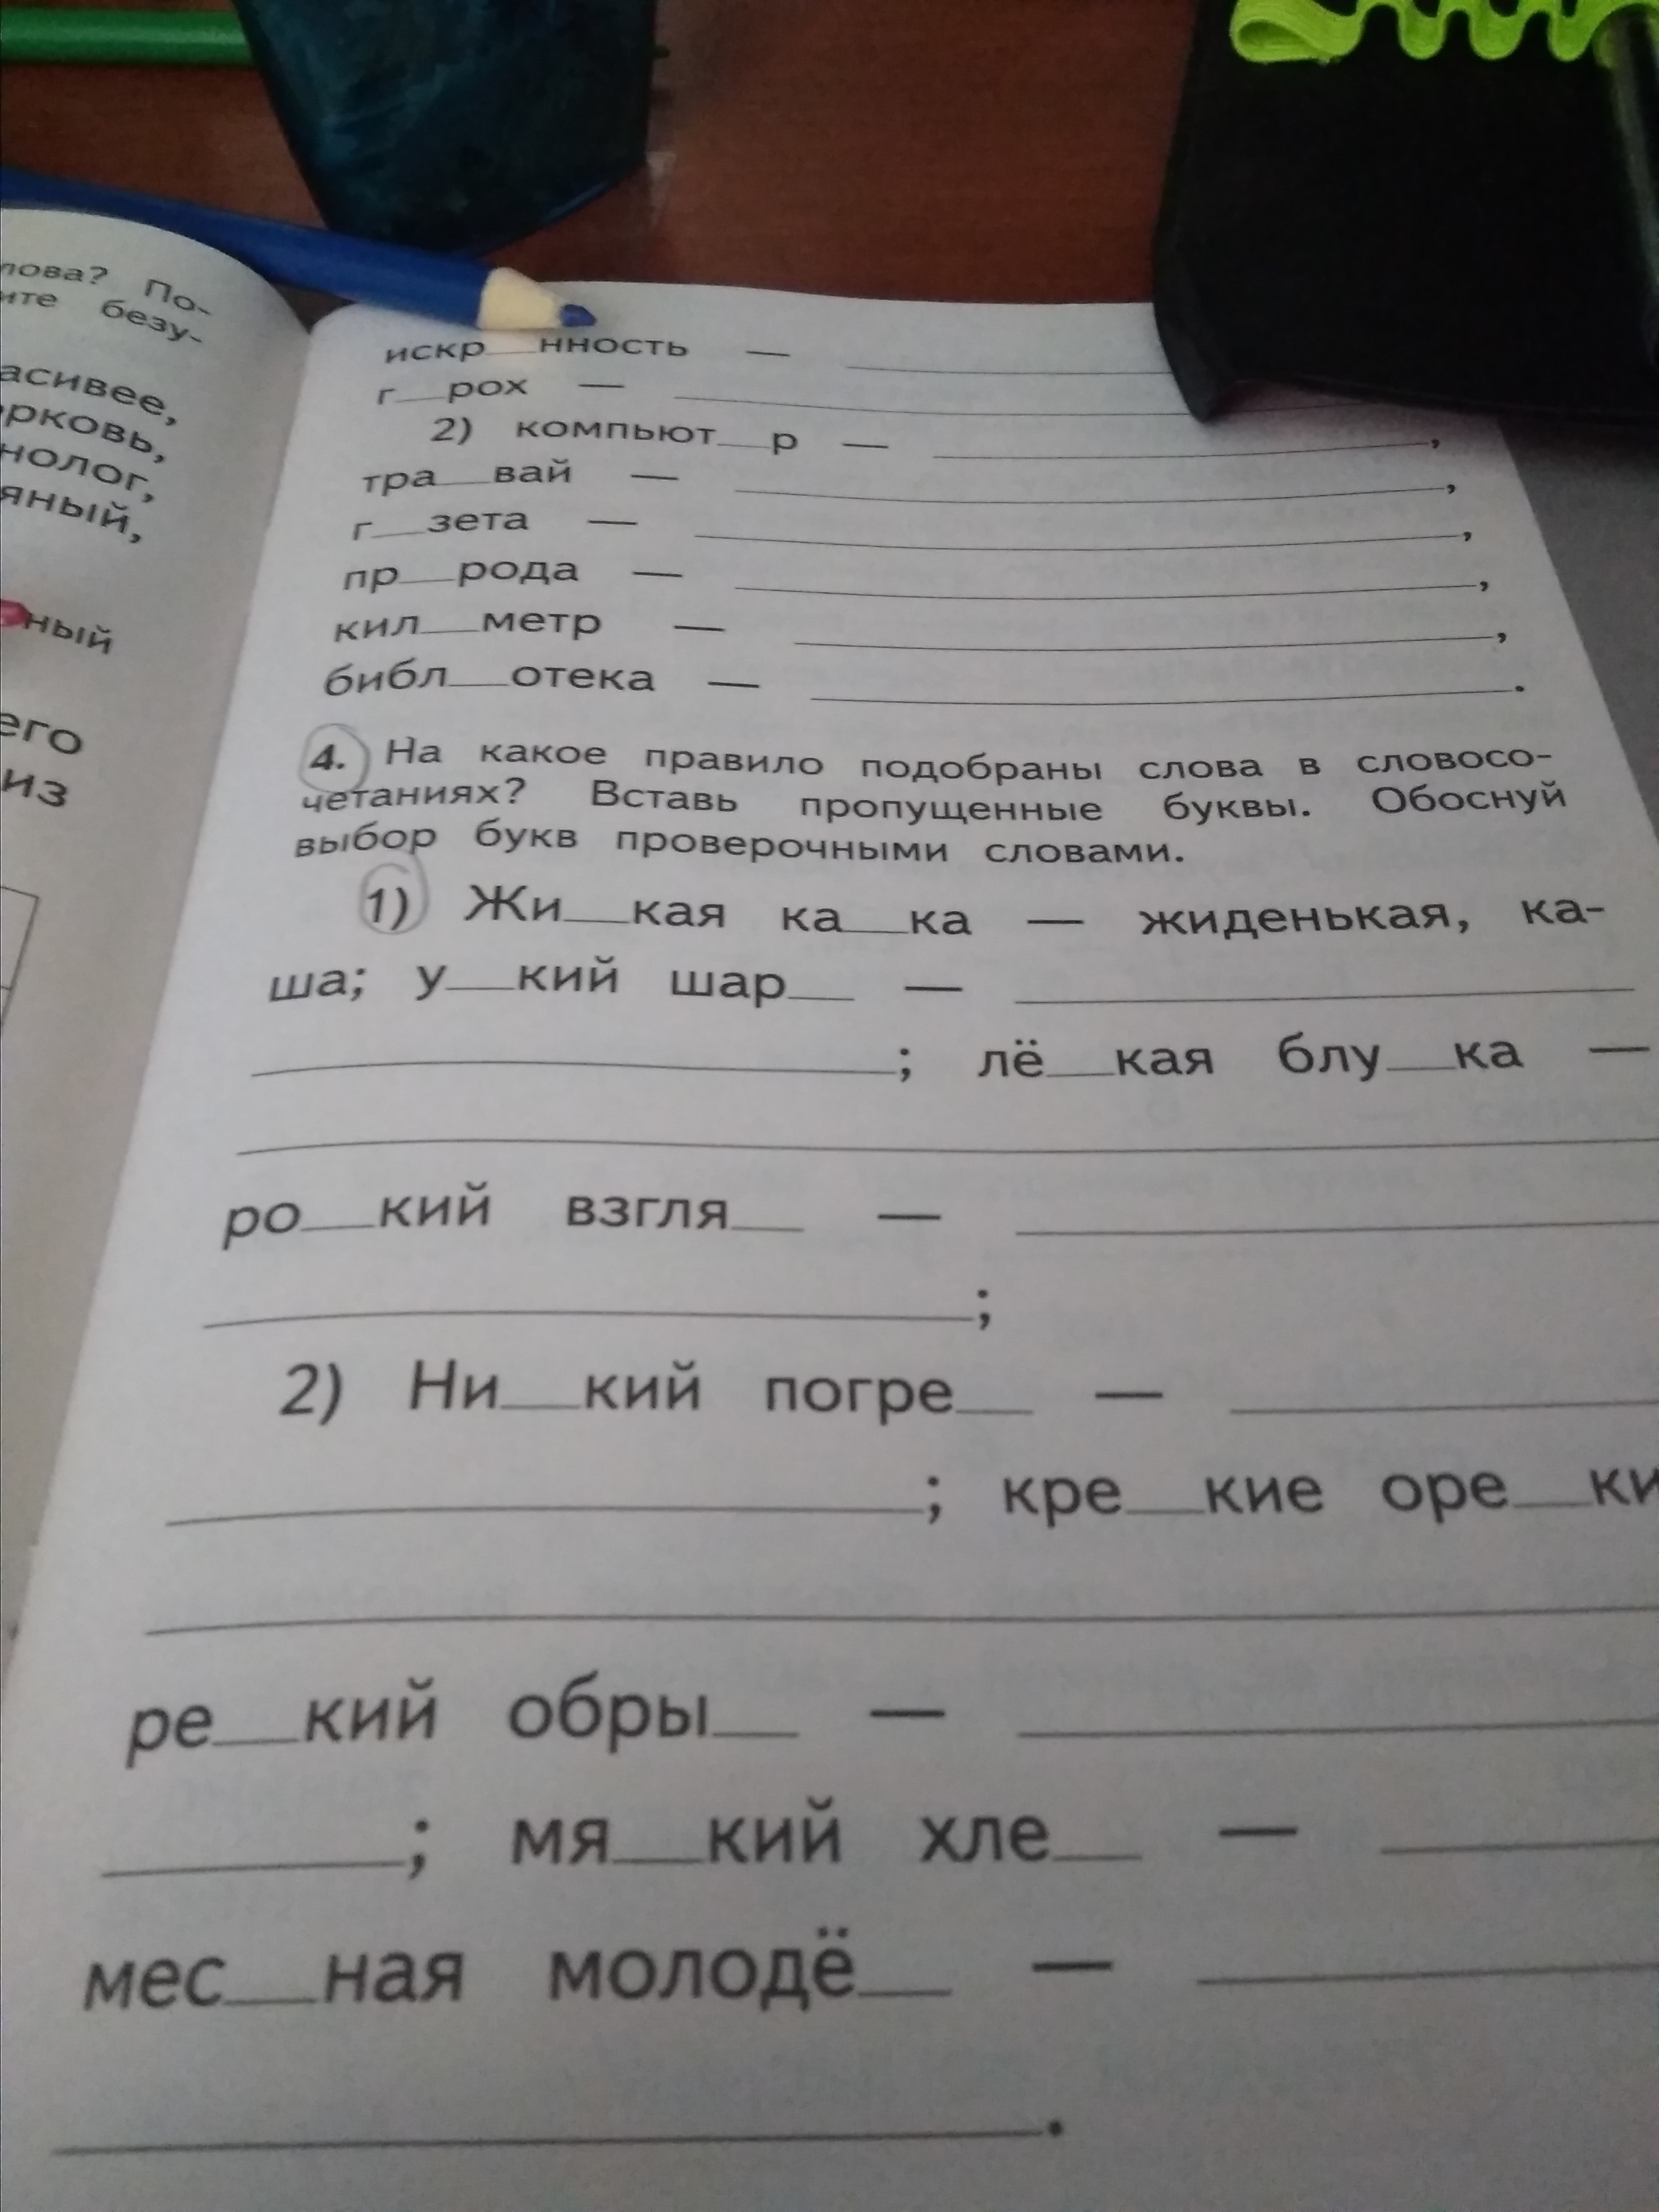 лова? По-
ите безу-
асивее,
рковь,
нолог,
яный,
ный
его
из
искр__нность —
г__рох —
2) компьют__р — ,
тра__вай — ,
г__зета — ,
пр__рода — ,
кил__метр — ,
библ__отека — .
4. На какое правило подобраны слова в словосо-
четаниях? Вставь пропущенные буквы. Обоснуй
выбор букв проверочными словами.
1) Жи__кая ка__ка — жиденькая, ка-
ша; у__кий шар__ —
; лё__кая блу__ка —
ро__кий взгля__ —
;
2) Ни__кий погре__ —
; кре__кие оре__ки
ре__кий обры__ —
; мя__кий хле__ —
мес__ная молодё__ —
.